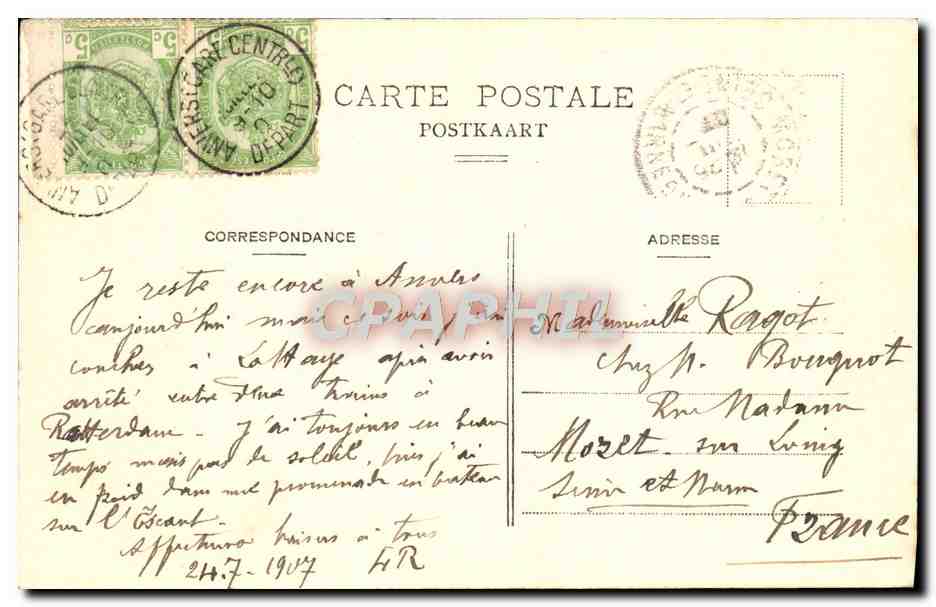 CARTE POSTALE
POSTKAART
ANVERS (GARE CENTRALE)
DEPART
CORRESPONDANCE
Je reste encore à Anvers
aujourd'hui mais ce soir j'irai
coucher à La Haye après avoir
arrêté entre deux trains à
Rotterdam - J'ai toujours eu beau
temps mais pas de soleil, puis j'ai
eu froid dans une promenade en bateau
sur l'Escaut -
Affectueux baisers à tous
24.7-1907 LR
ADRESSE
Mademoiselle Ragot
Chez M. Bouquot
Rue Madame
Moret sur Loing
Seine et Marne
France
CPAPHIL